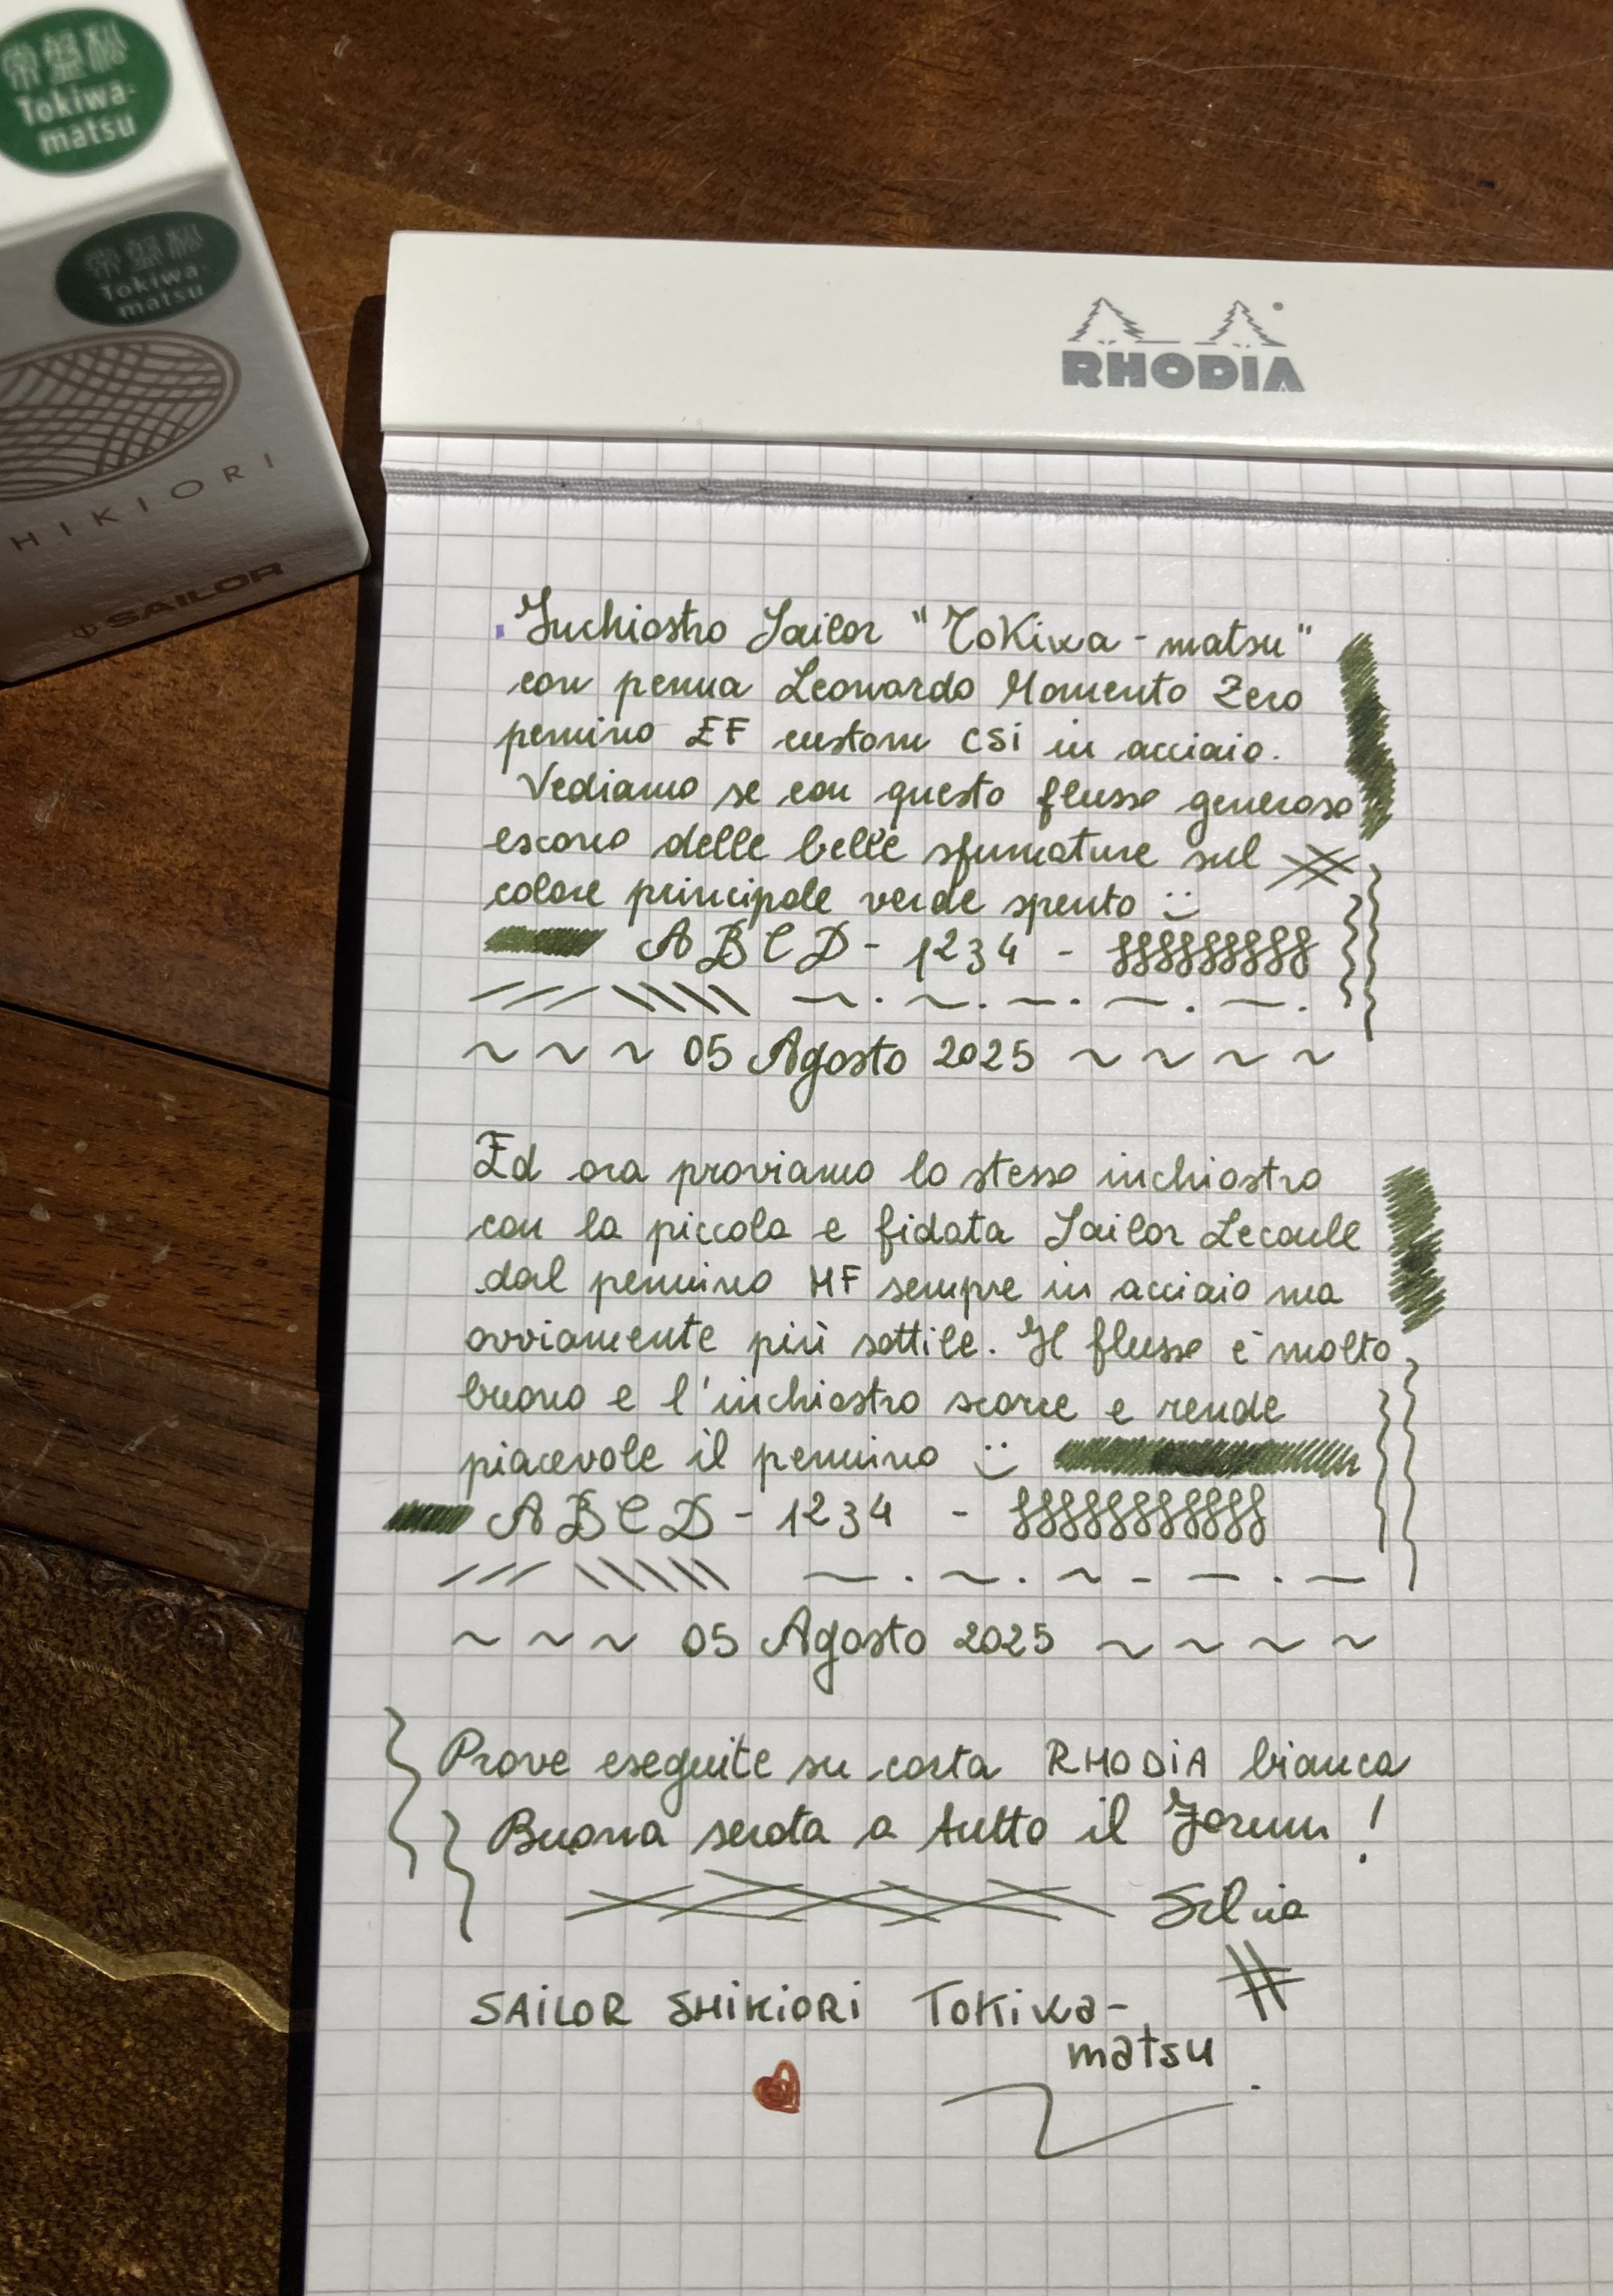 常盤松
Tokiwa-
matsu
常盤松
Tokiwa-
matsu
HIKIORI
SAILOR
RHODIA
Inchiostro Sailor "Tokiwa-matsu"
con penna Leonardo Momento Zero
pennino EF custom CSi in acciaio.
Vediamo se con questo flusso generoso
escono delle belle sfumature sul
colore principale verde spento :)
A B C D - 1234 -
~ ~ ~ 05 Agosto 2025 ~ ~ ~ ~
Ed ora proviamo lo stesso inchiostro
con la piccola e fidata Sailor Lecoule
dal pennino MF sempre in acciaio ma
ovviamente più sottile. Il flusso è molto
buono e l'inchiostro scorre e rende
piacevole il pennino :)
A B C D - 1234 -
~ ~ ~ 05 Agosto 2025 ~ ~ ~ ~
Prove eseguite su carta RHODIA bianca
Buona serata a tutto il Forum!
Silvia
SAILOR SHIKIORI Tokiwa-
matsu